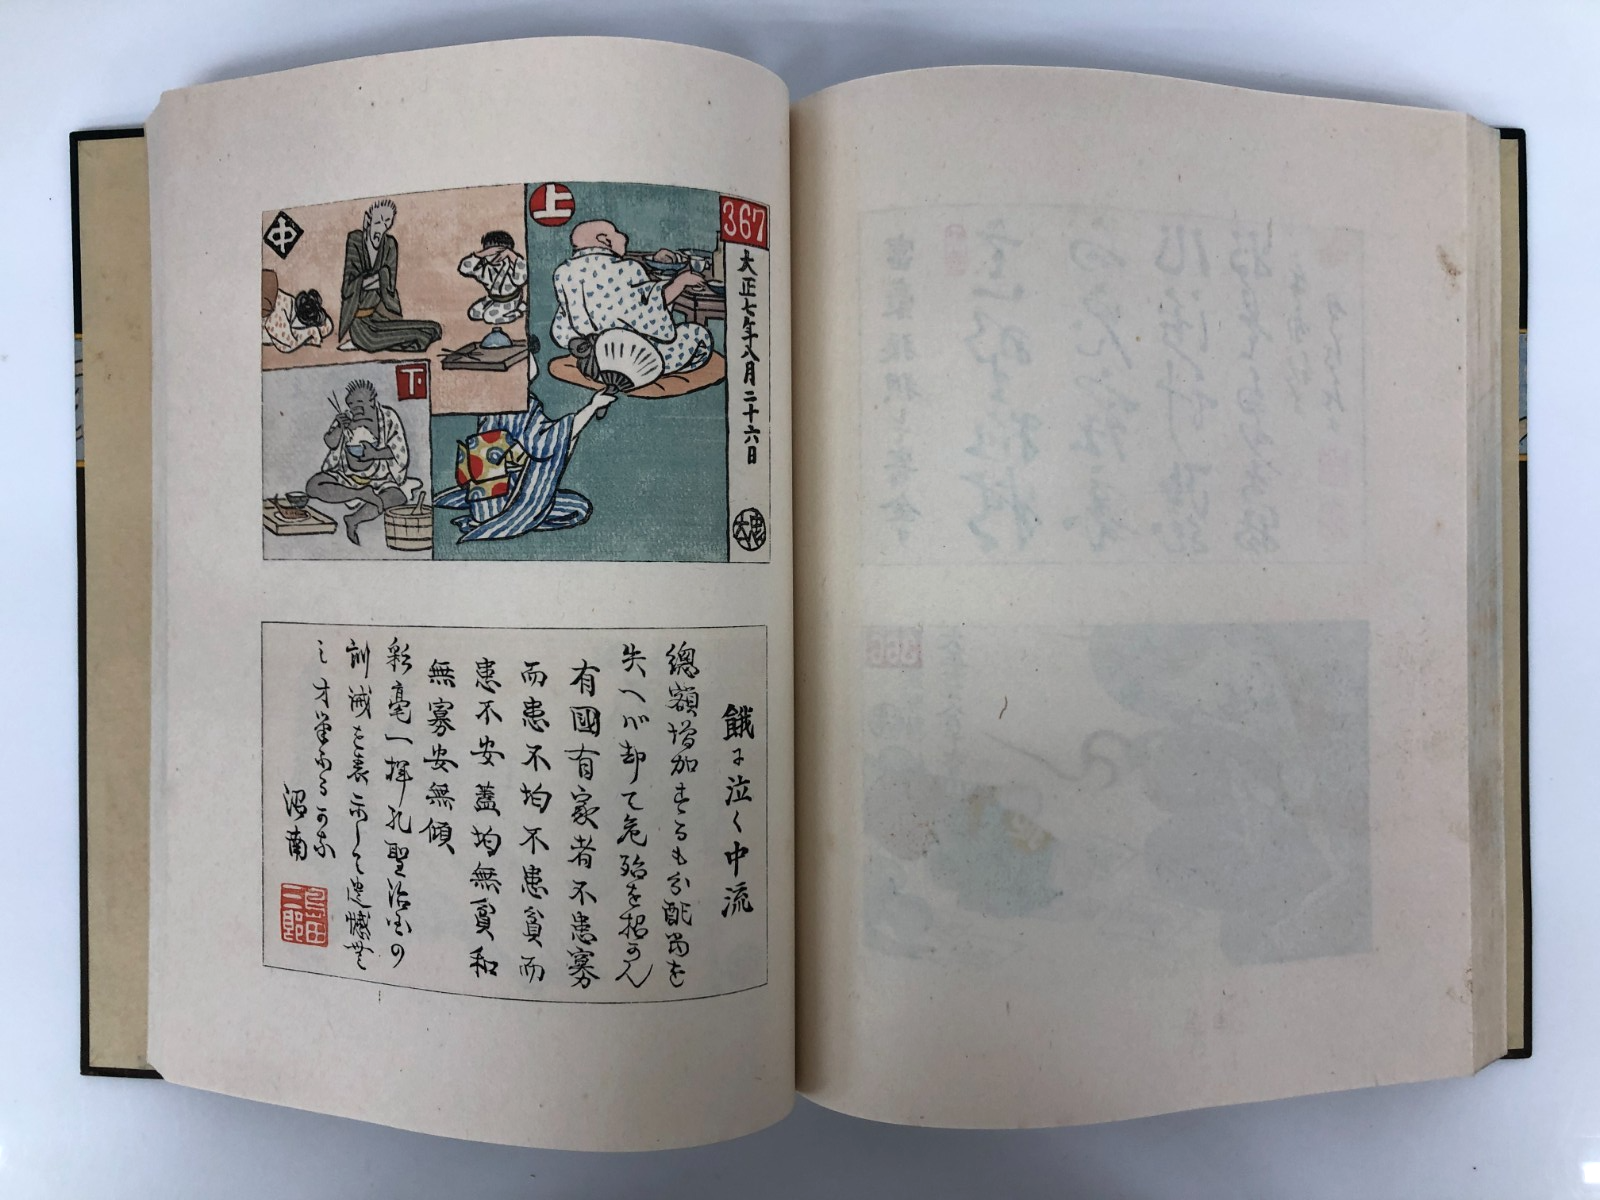 367
大正七年八月二十六日
上
中
下
餓に泣く中流
總額増加するも分配當を
失へバ却て危殆を招かん
有國有家者不患寡
而患不均不患貧而
患不安蓋均無貧和
無寡安無傾
彩毫一揮孔聖治国の
訓誡を表示して遺憾無
沼南
島田
三郎